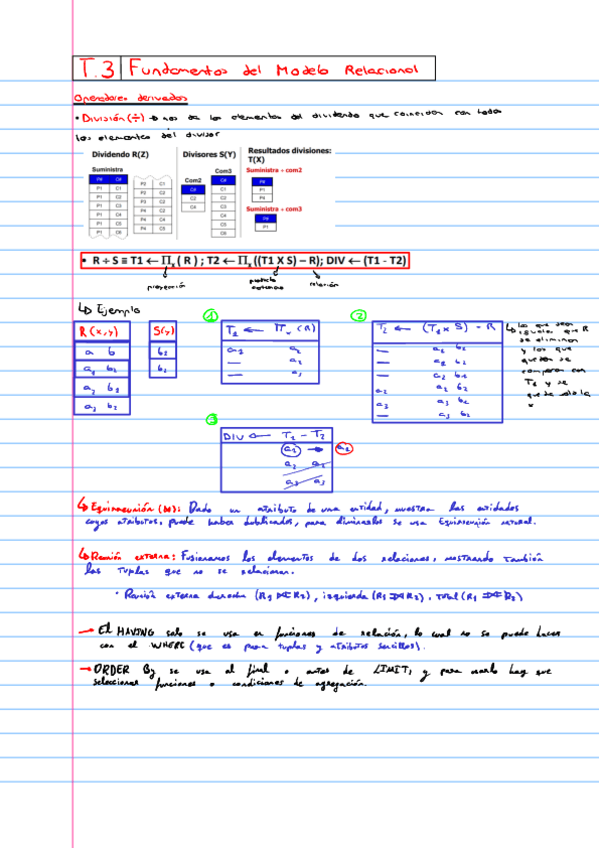 T.3 Fundamentos del Modelo Relacional
Operadores derivados
• División (÷) → nos da los elementos del dividendo que coinciden con todos
los elementos del divisor
Dividendo R(Z)
Suministra
P# C#
P1 C1
P1 C2
P1 C3
P1 C4
P1 C5
P1 C6
P2 C1
P2 C2
P3 C2
P4 C2
P4 C4
P4 C5
Divisores S(Y)
Com2
C#
C2
C4
Com3
C#
C1
C2
C3
C4
C5
C6
Resultados divisiones:
T(X)
Suministra ÷ com2
P#
P1
P4
Suministra ÷ com3
P#
P1
• R ÷ S ≡ T1 ← ∏x ( R ) ; T2 ← ∏x ((T1 X S) – R); DIV ← (T1 - T2)
proyección
producto
cartesiano
relación
↳ Ejemplo
R(x,y)
a b
a1 b2
a2 b1
a3 b2
S(y)
b1
b2
①
T1 ← ∏x (R)
a1 a1
— a2
— a3
②
T2 ← (T1 x S) - R
— a1 b1
— a1 b2
— a2 b1
a2 a2 b2
a3 b1
— a3 b2
↳ Los que sean
iguales que R
se eliminan
y los que
quedan se
comparan con
T1 y se
queda solo la
x
③
DIV ← T1 - T2
a1 → a1
a2 a2
a3 a3
↳ Equirreunión (⋈): Dado un atributo de una entidad, muestra las entidades
cuyos atributos, puede haber dublicados, para eliminarlos se usa Equirreunión natural.
↳ Reunión externa: Fusionamos los elementos de dos relaciones, mostrando también
las tuplas que no se relacionan.
• Reunión externa derecha (R1 ⟖ R2), izquierda (R1 ⟕ R2), total (R1 ⟗ R2)
→ El HAVING solo se usa en funciones de relación, lo cual no se puede hacer
con el WHERE (que es para tuplas y atributos sencillos).
→ ORDER By se usa al final o antes de LIMIT, y para usarlo hay que
seleccionar funciones o condiciones de agregación.